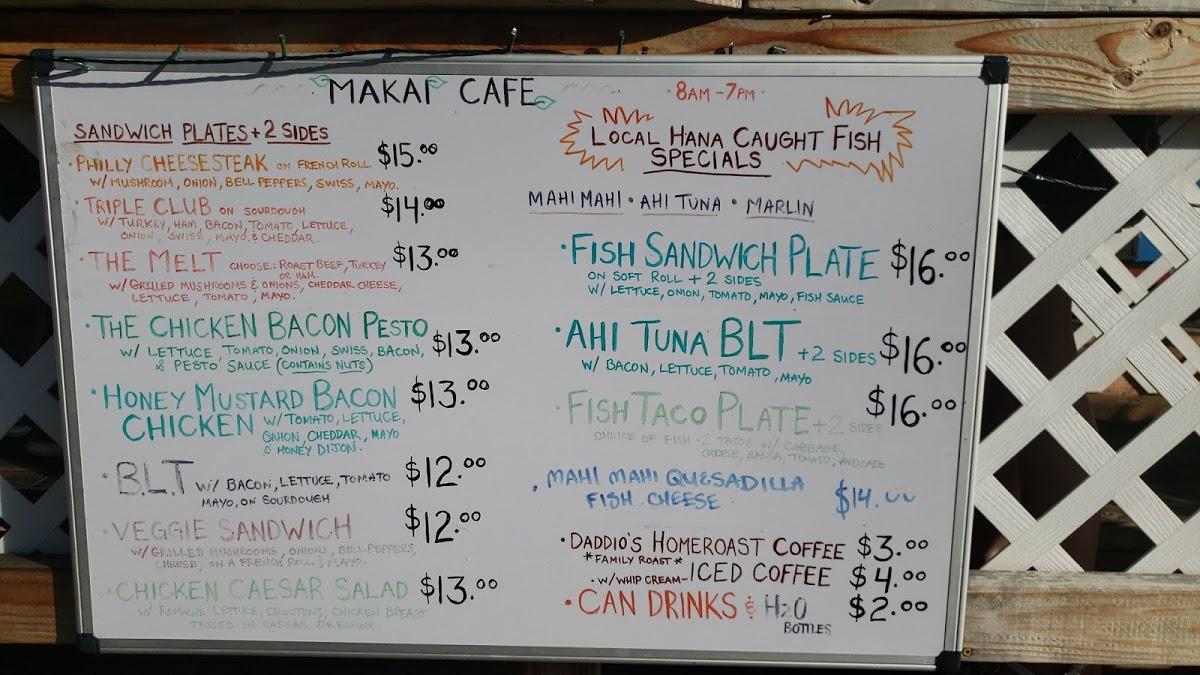 MAKAI CAFE
8AM-7PM
SANDWICH PLATES + 2 SIDES
• PHILLY CHEESESTEAK ON FRENCH ROLL $15.00
W/ MUSHROOM, ONION, BELL PEPPERS, SWISS, MAYO.
• TRIPLE CLUB ON SOURDOUGH $14.00
W/ TURKEY, HAM, BACON, TOMATO, LETTUCE,
ONION, SWISS, MAYO & CHEDDAR.
• THE MELT CHOOSE: ROAST BEEF, TURKEY $13.00
OR HAM.
W/ GRILLED MUSHROOMS & ONIONS, CHEDDAR CHEESE,
LETTUCE, TOMATO, MAYO.
• THE CHICKEN BACON PESTO $13.00
W/ LETTUCE, TOMATO, ONION, SWISS, BACON,
& PESTO SAUCE (CONTAINS NUTS)
• HONEY MUSTARD BACON $13.00
CHICKEN W/ TOMATO, LETTUCE,
ONION, CHEDDAR, MAYO
& HONEY DIJON.
• B.L.T W/ BACON, LETTUCE, TOMATO $12.00
MAYO, ON SOURDOUGH
• VEGGIE SANDWICH $12.00
W/ GRILLED MUSHROOMS, ONIONS, BELL PEPPERS,
CHEESE, ON A FRENCH ROLL & MAYO.
• CHICKEN CAESAR SALAD $13.00
W/ ROMAINE LETTUCE, CROUTONS, CHICKEN BREAST
TOSSED IN CAESAR DRESSING.
LOCAL HANA CAUGHT FISH
SPECIALS
MAHI MAHI • AHI TUNA • MARLIN
• FISH SANDWICH PLATE $16.00
ON SOFT ROLL + 2 SIDES
W/ LETTUCE, ONION, TOMATO, MAYO, FISH SAUCE
• AHI TUNA BLT + 2 SIDES $16.00
W/ BACON, LETTUCE, TOMATO, MAYO
• FISH TACO PLATE + 2 SIDES $16.00
CHOICE OF FISH • 2 TACOS W/ CABBAGE,
CHEESE, SALSA, TOMATO, AVOCADO
• MAHI MAHI QUESADILLA
FISH. CHEESE $14.00
• DADDIO'S HOMEROAST COFFEE $3.00
*FAMILY ROAST*
• W/ WHIP CREAM - ICED COFFEE $4.00
• CAN DRINKS & H2O $2.00
BOTTLES